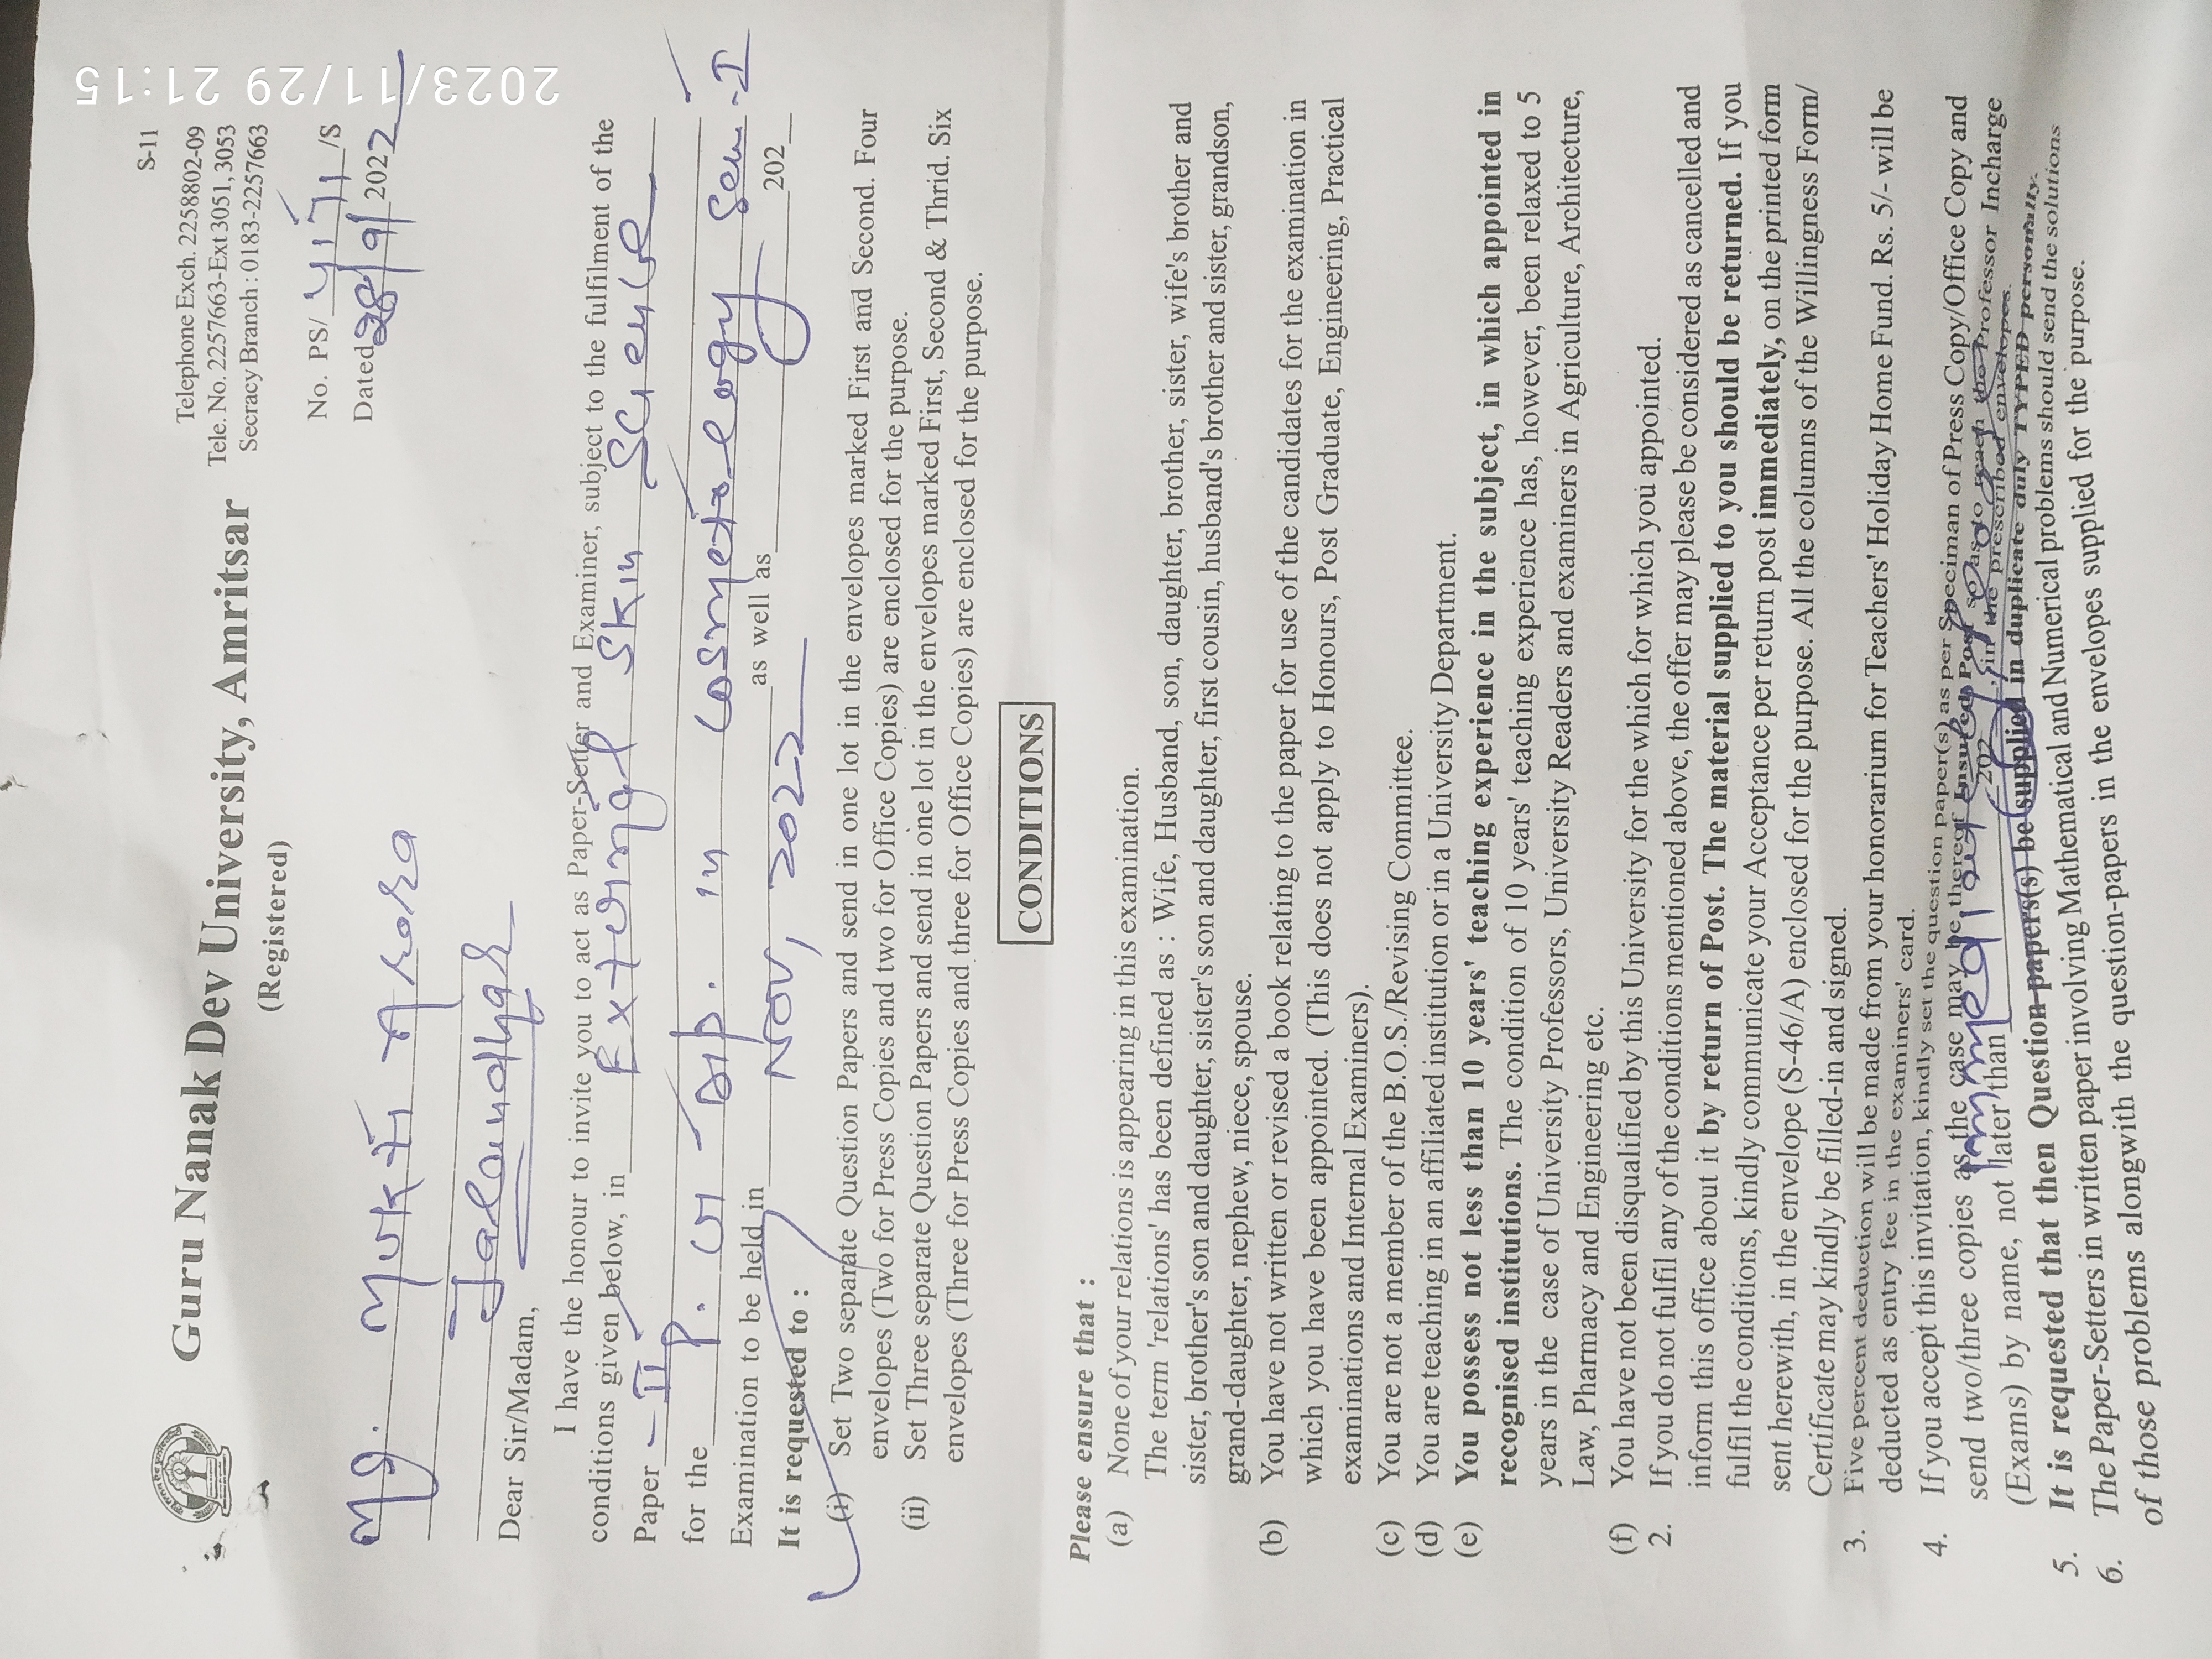 S-11
Guru Nanak Dev University, Amritsar
(Registered)
Telephone Exch. 2258802-09
Tele. No. 2257663-Ext 3051, 3053
Secracy Branch : 0183-2257663
No. PS/ 4171 /S
Dated 28/9/2022
Ms. Mukti Arora
Jalandhar
Dear Sir/Madam,
I have the honour to invite you to act as Paper-Setter and Examiner, subject to the fulfilment of the
conditions given below, in External Skin Science
Paper - II
for the P. G Dip. in Cosmetology Sem-I
Examination to be held in Nov, 2022 as well as 202
It is requested to :
(i) Set Two separate Question Papers and send in one lot in the envelopes marked First and Second. Four
envelopes (Two for Press Copies and two for Office Copies) are enclosed for the purpose.
(ii) Set Three separate Question Papers and send in one lot in the envelopes marked First, Second & Thrid. Six
envelopes (Three for Press Copies and three for Office Copies) are enclosed for the purpose.
CONDITIONS
Please ensure that :
(a) None of your relations is appearing in this examination.
The term 'relations' has been defined as : Wife, Husband, son, daughter, brother, sister, wife's brother and
sister, brother's son and daughter, sister's son and daughter, first cousin, husband's brother and sister, grandson,
grand-daughter, nephew, niece, spouse.
(b) You have not written or revised a book relating to the paper for use of the candidates for the examination in
which you have been appointed. (This does not apply to Honours, Post Graduate, Engineering, Practical
examinations and Internal Examiners).
(c) You are not a member of the B.O.S./Revising Committee.
(d) You are teaching in an affiliated institution or in a University Department.
(e) You possess not less than 10 years' teaching experience in the subject, in which appointed in
recognised institutions. The condition of 10 years' teaching experience has, however, been relaxed to 5
years in the case of University Professors, University Readers and examiners in Agriculture, Architecture,
Law, Pharmacy and Engineering etc.
(f) You have not been disqualified by this University for the which for which you appointed.
2. If you do not fulfil any of the conditions mentioned above, the offer may please be considered as cancelled and
inform this office about it by return of Post. The material supplied to you should be returned. If you
fulfil the conditions, kindly communicate your Acceptance per return post immediately, on the printed form
sent herewith, in the envelope (S-46/A) enclosed for the purpose. All the columns of the Willingness Form/
Certificate may kindly be filled-in and signed.
3. Five percent deduction will be made from your honorarium for Teachers' Holiday Home Fund. Rs. 5/- will be
deducted as entry fee in the examiners' card.
4. If you accept this invitation, kindly set the question paper(s) as per Speciman of Press Copy/Office Copy and
send two/three copies as the case may be thereof Insured Post so as to reach the Professor Incharge
(Exams) by name, not later than immediately 202 , in the prescribed envelopes.
5. It is requested that then Question-papers(s) be supplied in duplicate duly TYPED personally.
6. The Paper-Setters in written paper involving Mathematical and Numerical problems should send the solutions
of those problems alongwith the question-papers in the envelopes supplied for the purpose.
2023/11/29 21:15